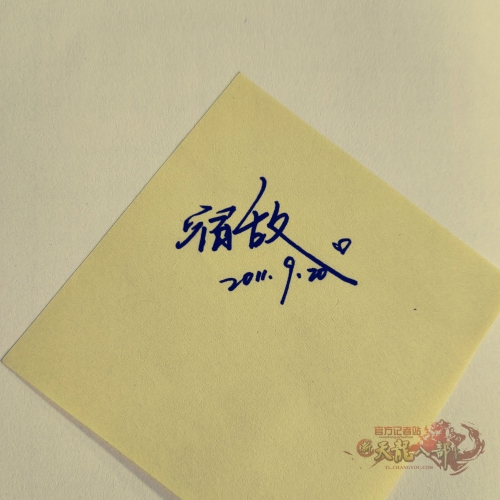 宿敌
2011.9.20
官方记者站
新天龙八部
TL.CHANGYOU.COM